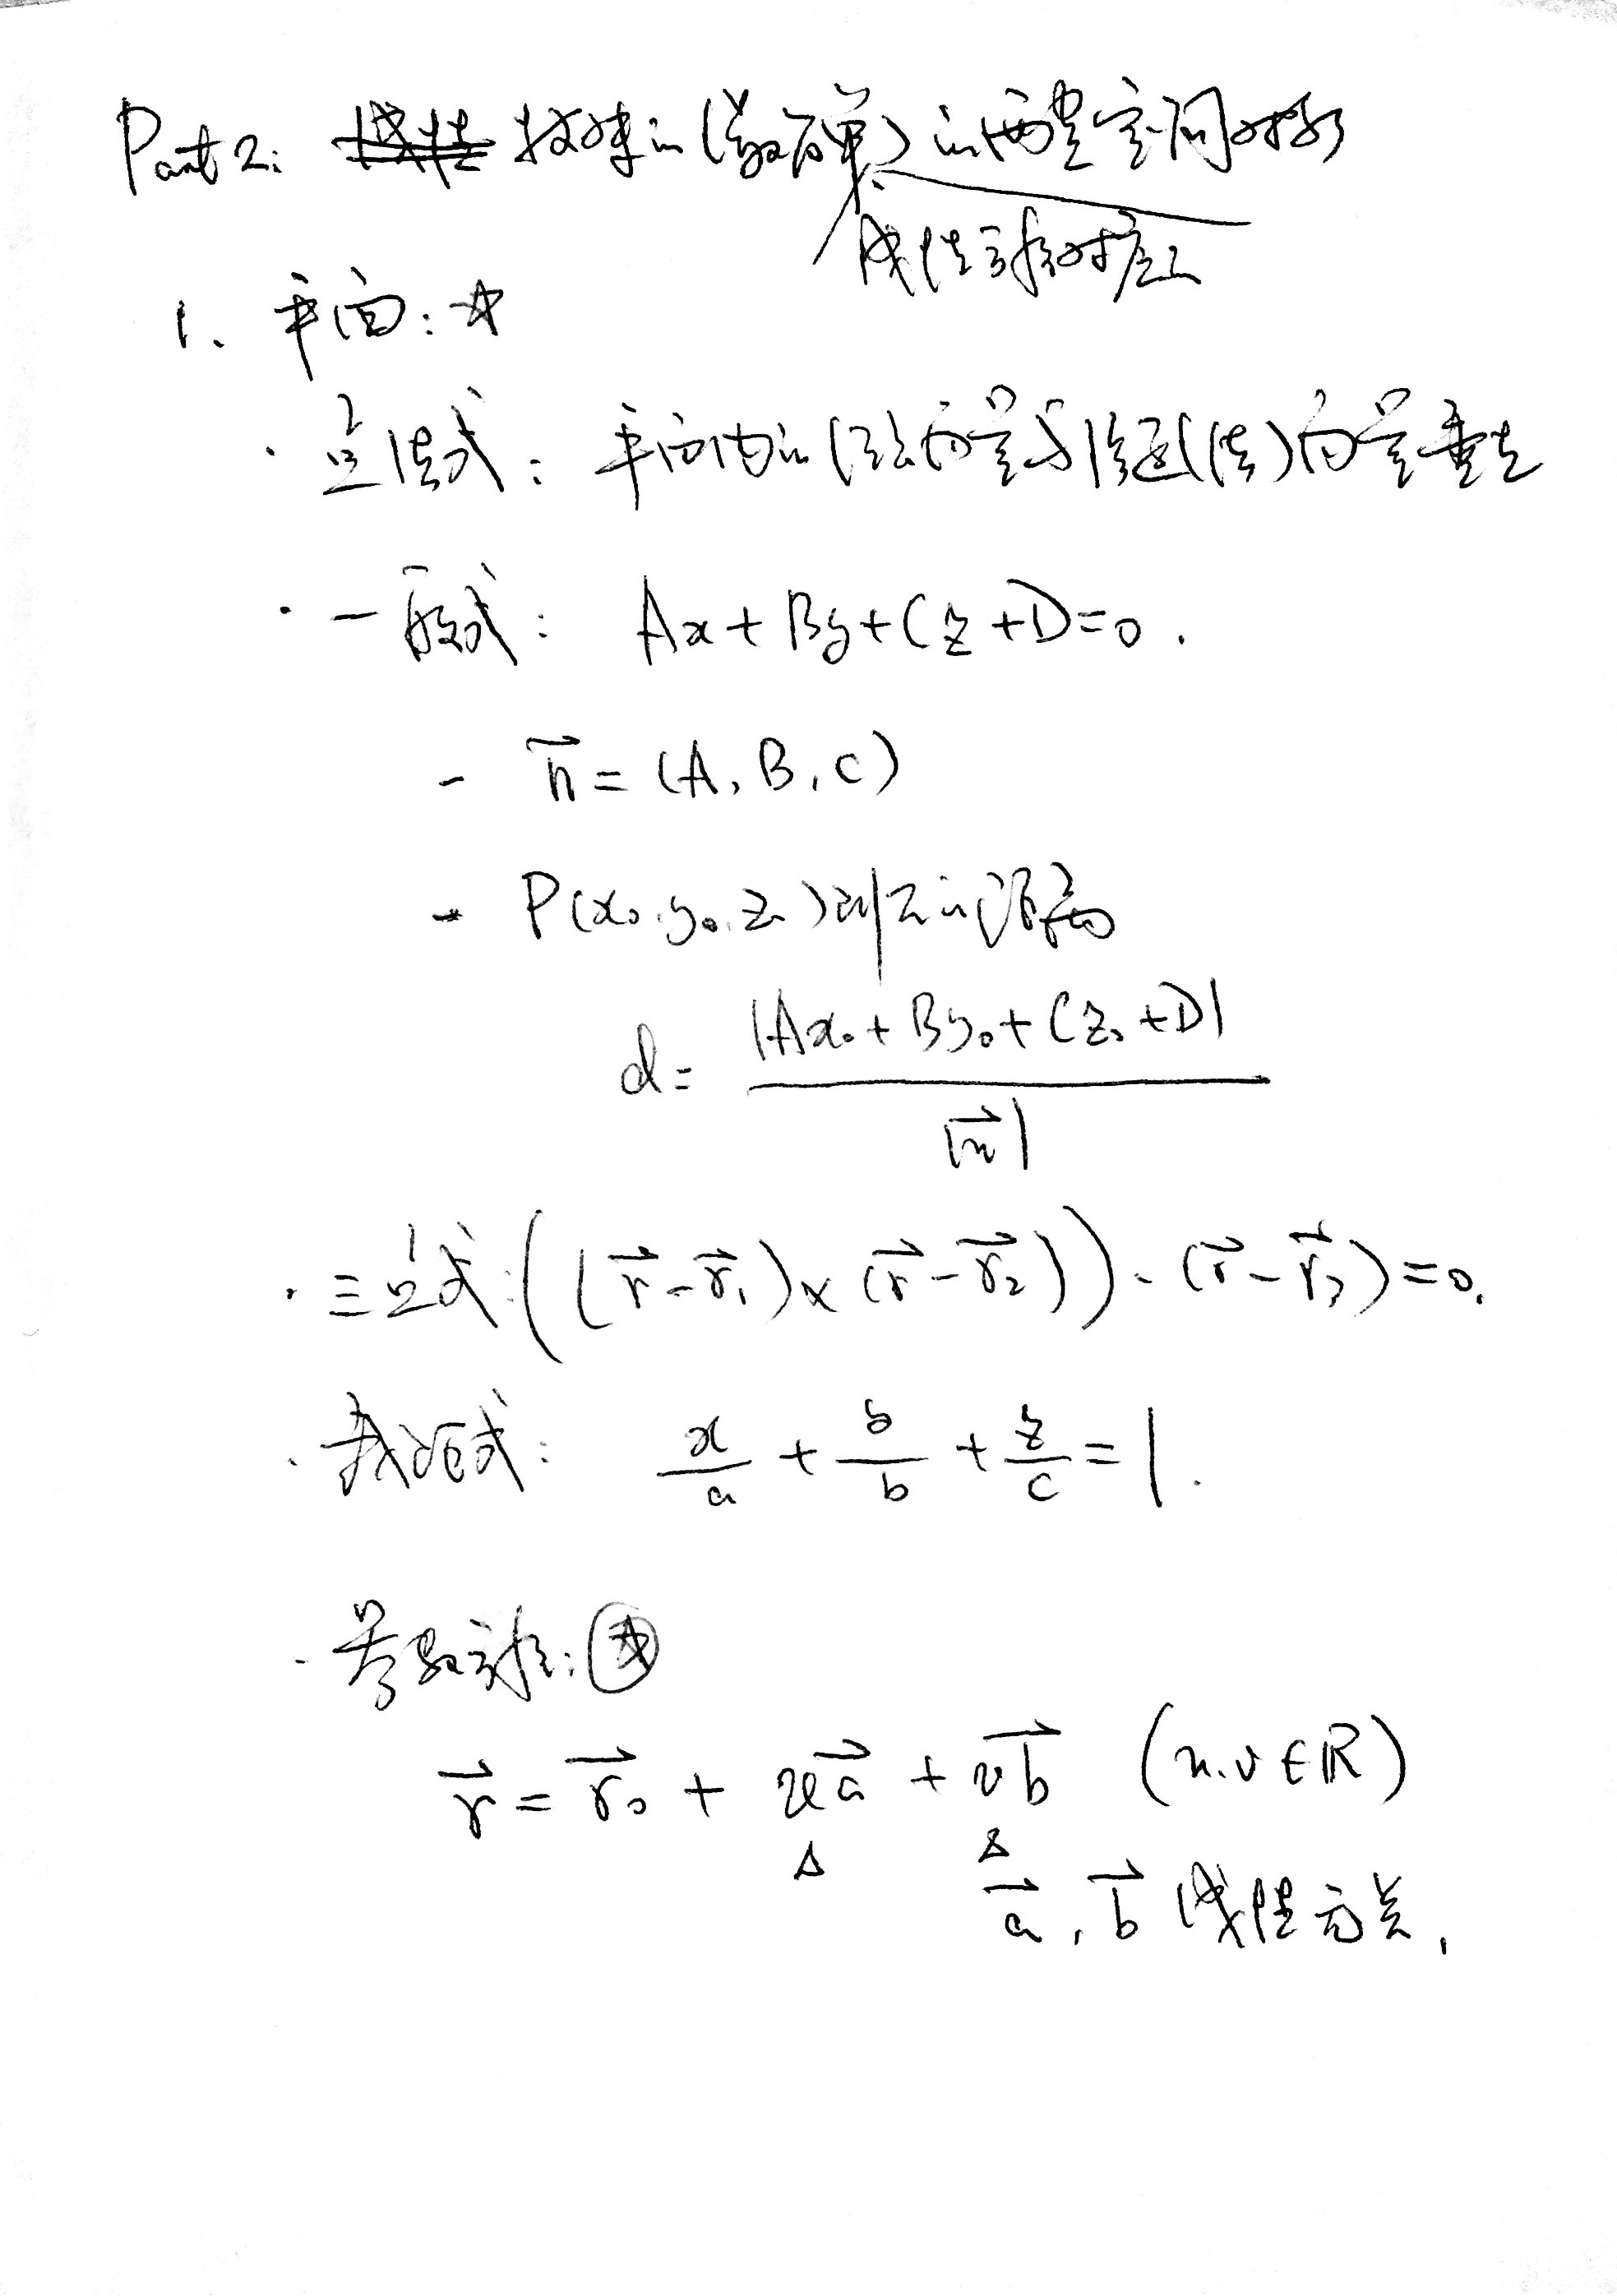 Part 2: 线性 较球的(最简单)的两类空间对象
线性方程对应
1. 平面: ☆
· 点法式: 平面内的任意向量与法(法)向量垂直
· 一般式: Ax + By + Cz + D = 0.
- \vec{n} = (A, B, C)
- P(x₀, y₀, z₀)到 的距离
d = \frac{|Ax₀ + By₀ + Cz₀ + D|}{|\vec{n}|}
· 三点式: ((\vec{r} - \vec{r₁}) × (\vec{r} - \vec{r₂})) · (\vec{r} - \vec{r₃}) = 0.
· 截距式: \frac{x}{a} + \frac{y}{b} + \frac{z}{c} = 1.
· 参数方程: ☆
\vec{r} = \vec{r₀} + u\vec{a} + v\vec{b} (u, v ∈ ℝ)
\vec{a}, \vec{b} 线性无关.